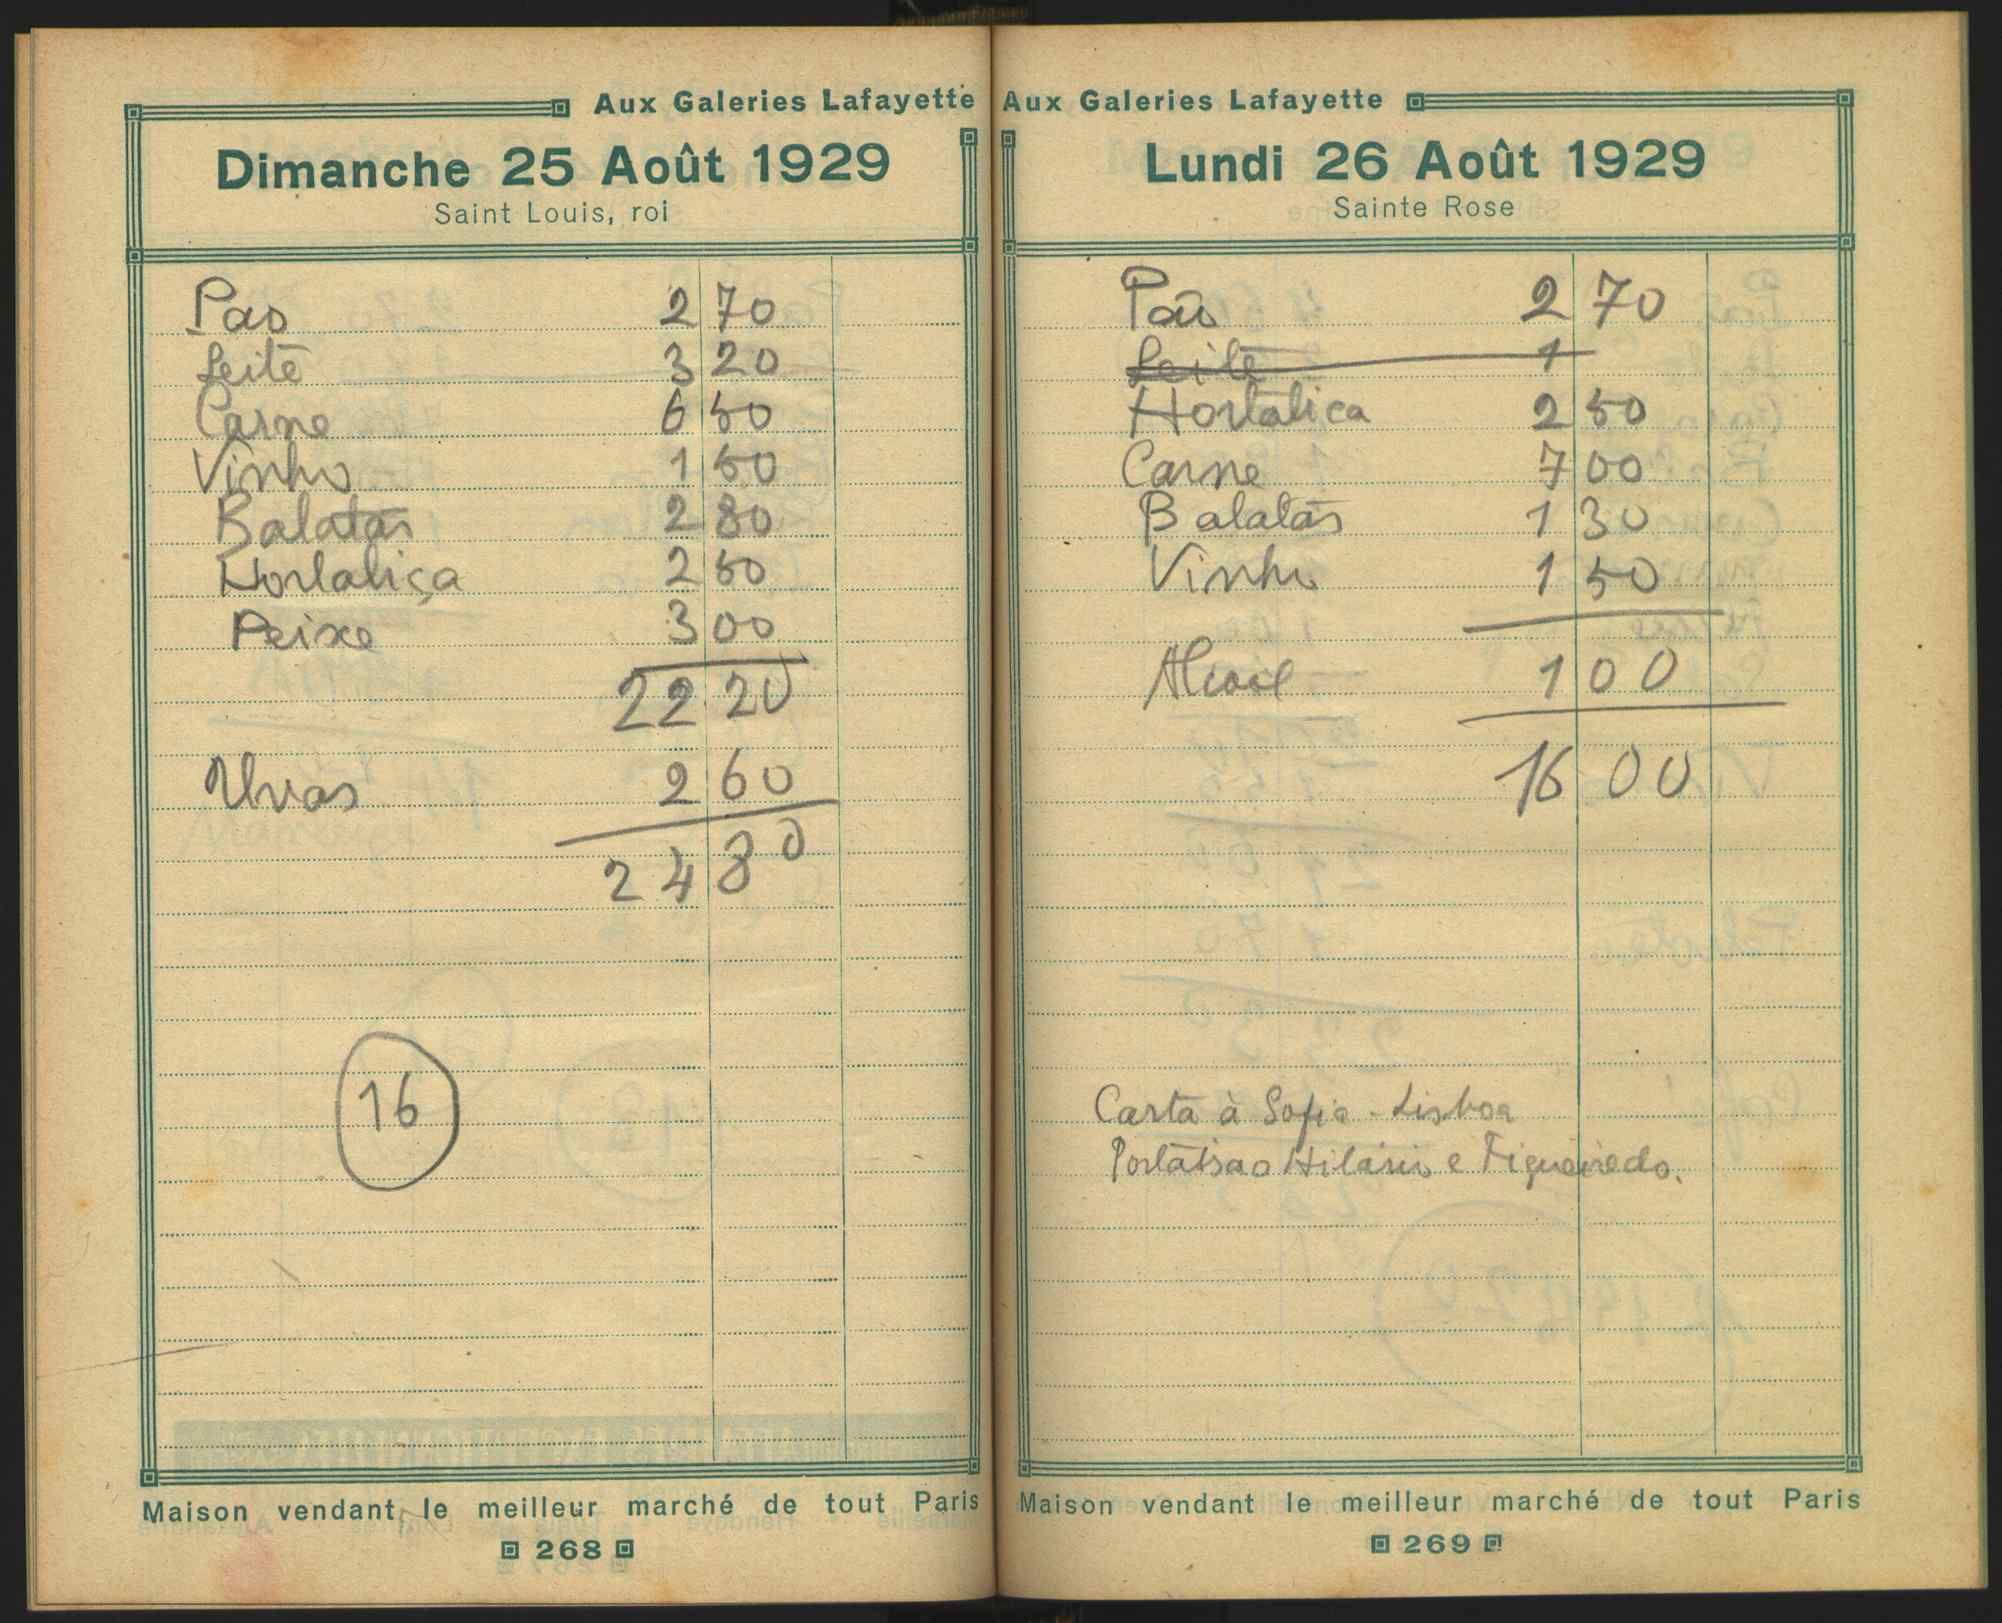 Aux Galeries Lafayette
Dimanche 25 Août 1929
Saint Louis, roi
Pao 2 70
Leite 3 20
Carne 6 50
Vinho 1 50
Batatas 2 80
Hortaliça 2 50
Peixe 3 00
22 20
Uvas 2 60
24 80
16
Maison vendant le meilleur marché de tout Paris
268
Aux Galeries Lafayette
Lundi 26 Août 1929
Sainte Rose
Pão 2 70
Leite 1
Hortalica 2 50
Carne 7 00
Batatas 1 30
Vinho 1 50
Alcool 1 00
16 00
Carta à Sofia - Lisboa
Hilário e Figueiredo.
Maison vendant le meilleur marché de tout Paris
269